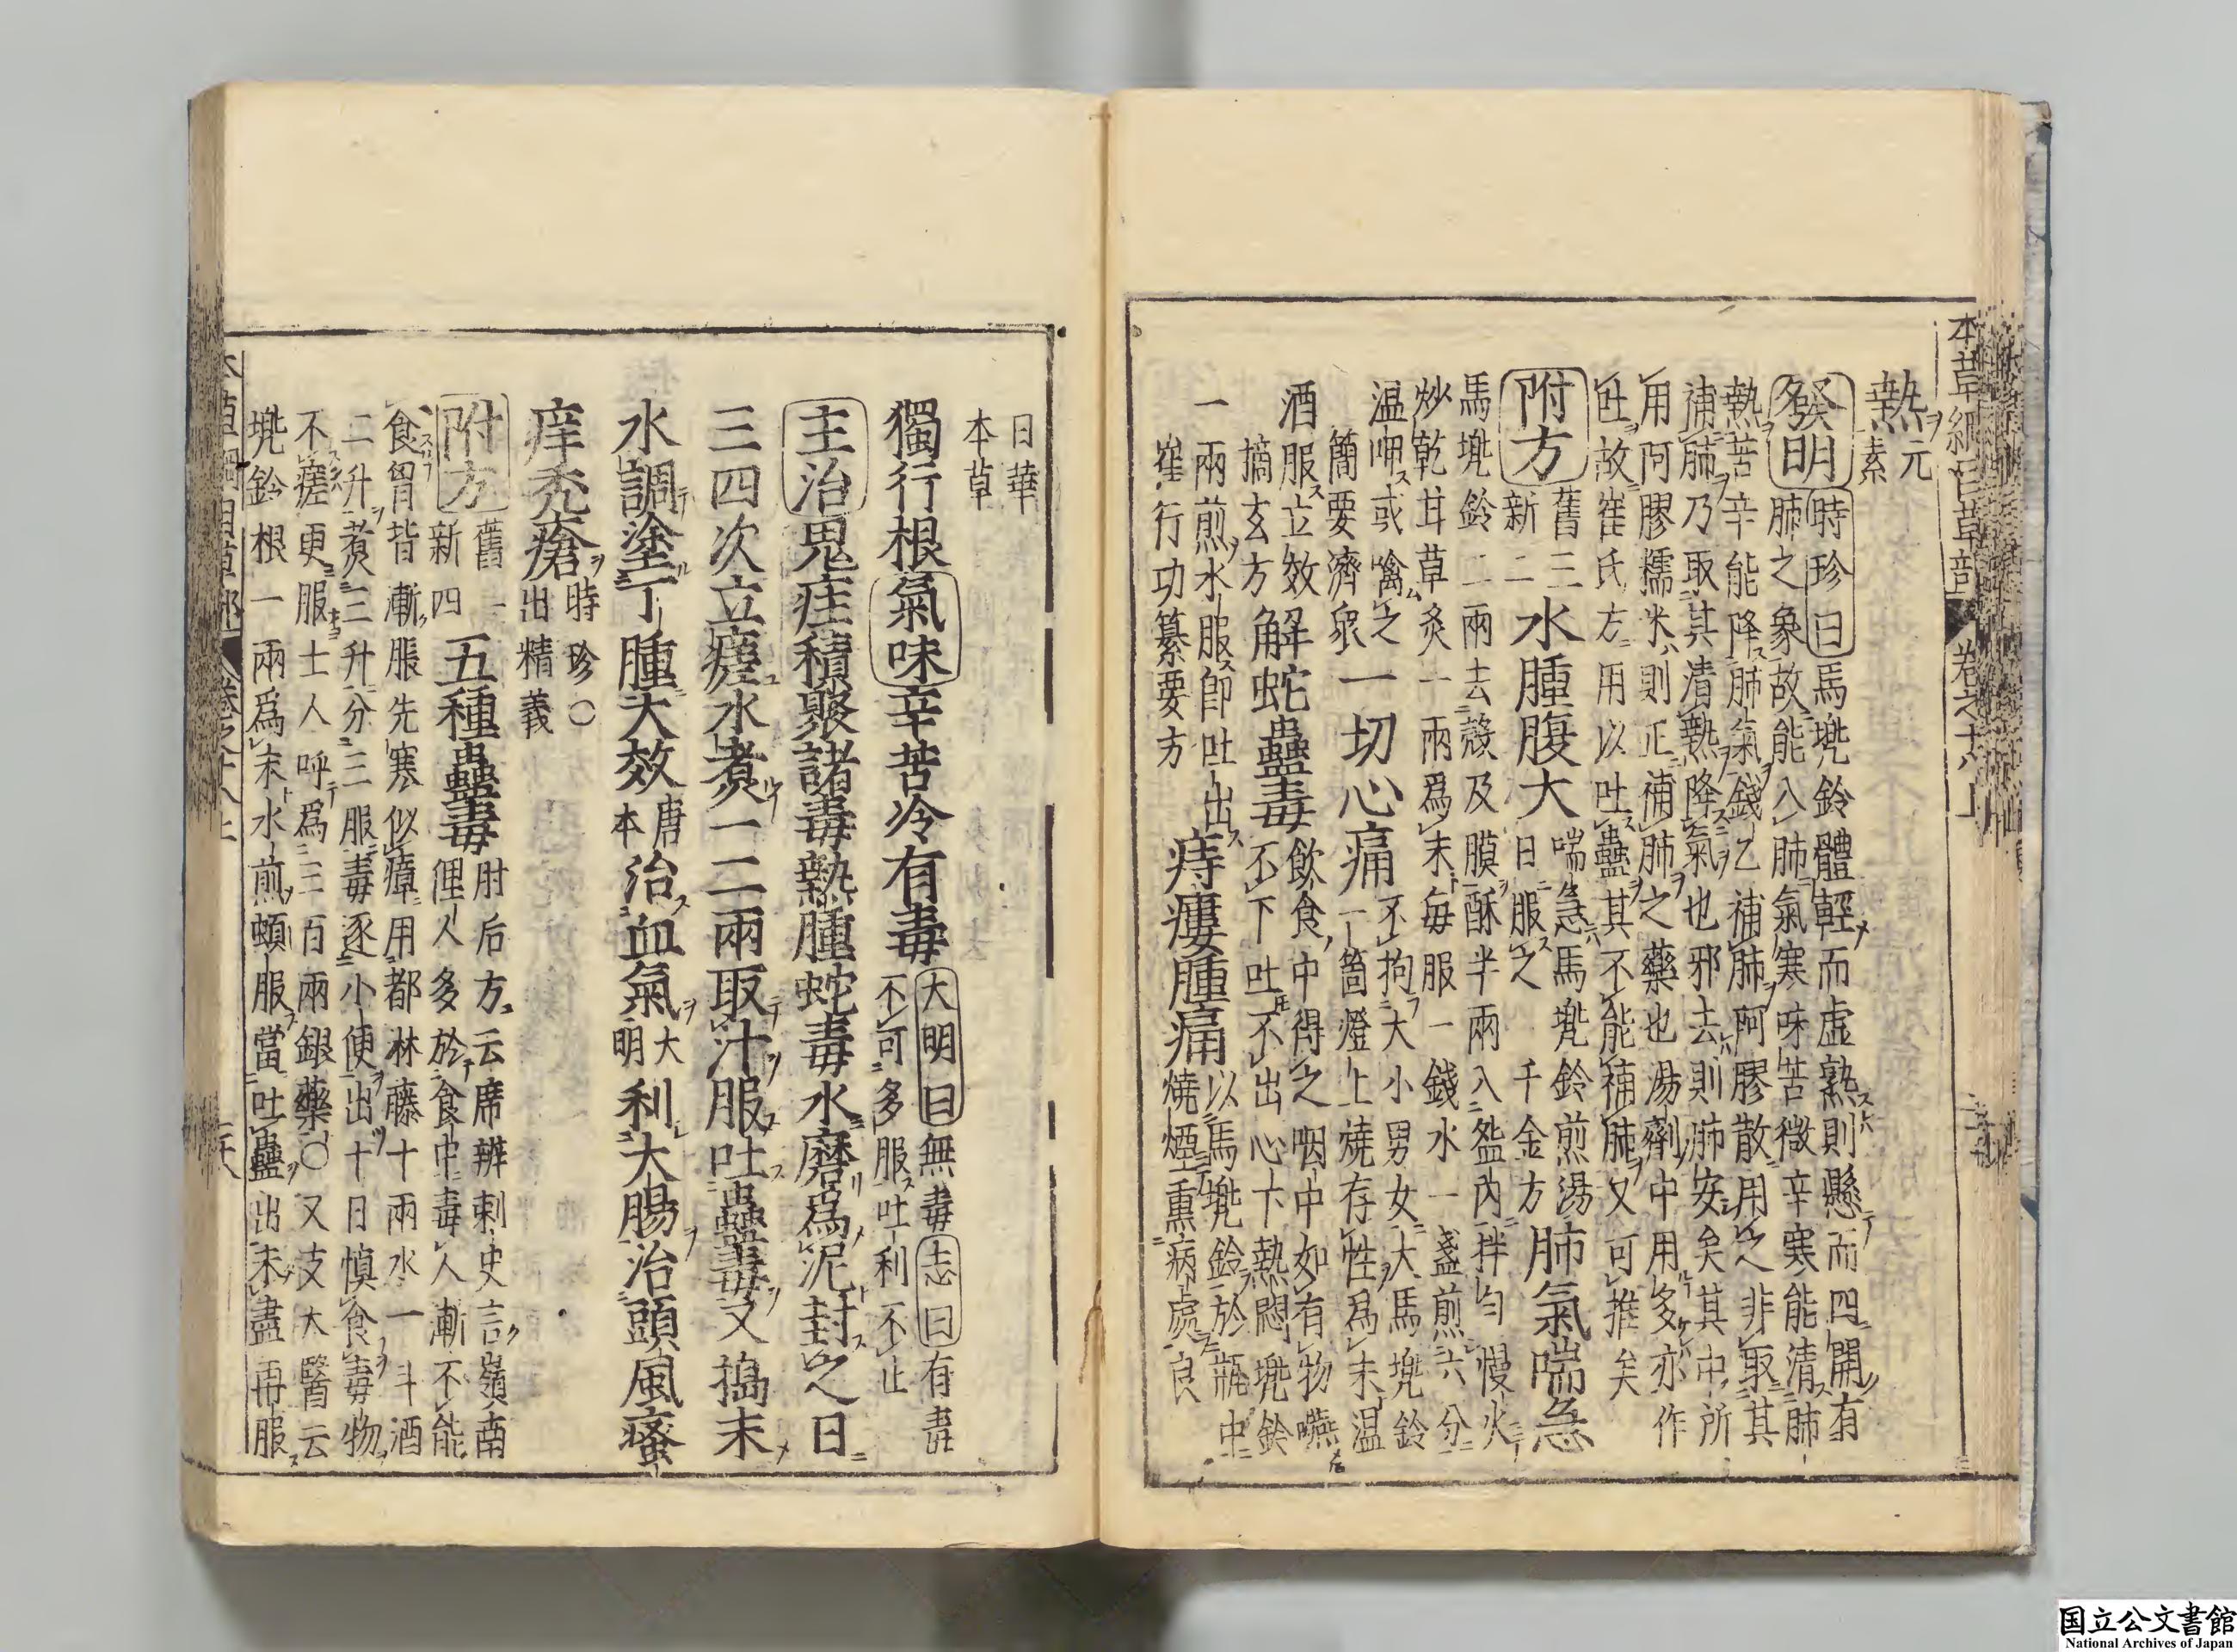 本草綱目草部 卷之十八上
熱元素
發明 時珍曰馬兠鈴體輕而虛熟則懸而四開有
肺之象故能入肺氣寒味苦微辛寒能清肺
熱苦辛能降肺氣錢乙補肺阿膠散用之非取其
補肺乃取其清熱降氣也邪去則肺安矣其中所
用阿膠糯米則正補肺之藥也湯劑中用多亦作
吐故崔氏方用以吐蠱其不能補肺又可推矣
附方 舊三新二 水腫腹大喘急馬兠鈴煎湯日服之 千金方 肺氣喘急
馬兠鈴二兩去殼及膜酥半兩入盌內拌勻慢火
炒乾甘草炙一兩爲末每服一錢水一盞煎六分
温呷或噙之 簡要濟衆 一切心痛不拘大小男女大馬兠鈴
一箇燈上燒存性爲末温
酒服立效 摘玄方 解蛇蠱毒飲食中得之咽中如有物嚥
不下吐不出心下熱悶兠鈴
一兩煎水服即吐出 崔行功纂要方 痔瘻腫痛以馬兠鈴於瓶中
燒煙熏病處良
日華本草
獨行根 氣味 辛苦冷有毒 大明曰無毒志曰有毒
不可多服吐利不止
主治 鬼疰積聚諸毒熱腫蛇毒水磨爲泥封之日
三四次立瘥水煮一二兩取汁服吐蠱毒又搗末
水調塗丁腫大效唐本治血氣大明利大腸治頭風瘙
痒禿瘡時珍〇出精義
附方 舊一新四 五種蠱毒肘后方云席辨剌史言嶺南
俚人多於食中毒人漸不能
食胷背漸脹先寒似瘴用都淋藤十兩水一斗酒
二升煮三升分三服毒逐小便出十日慎食毒物
不瘥更服士人呼爲三百兩銀藥〇又支太醫云
兠鈴根一兩爲末水煎頓服當吐蠱出未盡再服
本草綱目草部 卷之十八上
国立公文書館
National Archives of Japan